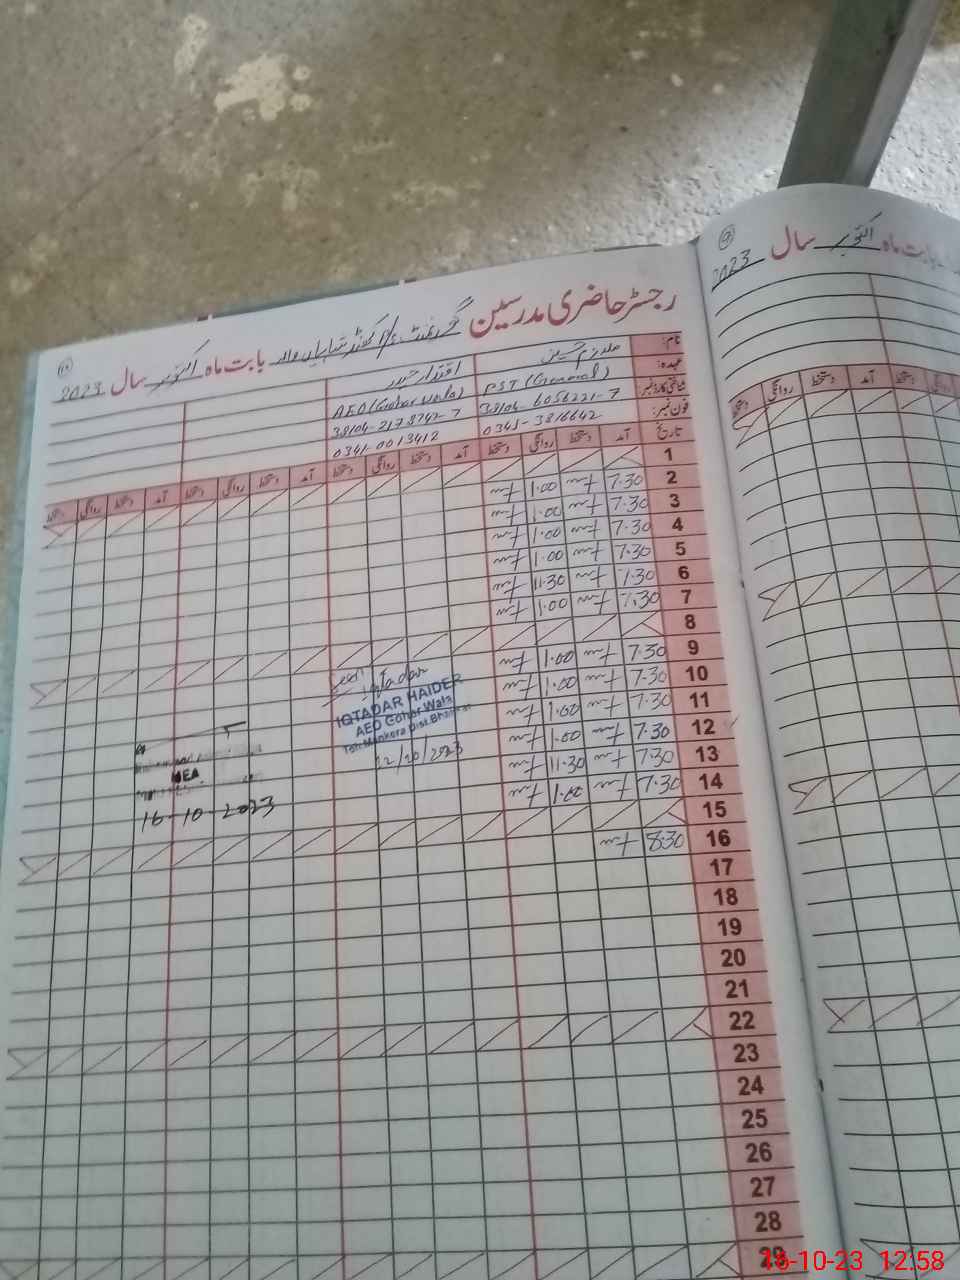 رجسٹر حاضری مدرسین گورنمنٹ بابت ماہ اکتوبر سال 2023
نام:
اقتدار حیدر
عہدہ:
PST (General)
AEO (Gohar Wala)
شناختی کارڈ نمبر:
38104-6056221-7
38104-2178742-7
فون نمبر:
0345-3816642
0341-0013412
تاریخ آمد دستخط روانگی دستخط آمد دستخط روانگی دستخط آمد دستخط روانگی دستخط آمد دستخط روانگی دستخط
1
2 7.30 1.00
3 7.30 1.00
4 7.30 1.00
5 7.30 1.00
6 7.30 11.30
7 7.30 1.00
8
9 7.30 1.00
10 7.30 1.00
11 7.30 1.00
12 7.30 1.00
13 7.30 11.30
14 7.30 1.00
15
16 8.30
17
18
19
20
21
22
23
24
25
26
27
28
29
Iqtadar
IQTADAR HAIDER
AEO Gohar Wala
Teh: Mankera Dist. Bhakkar
MEA
16-10-2023
بابت ماہ اکتوبر سال 2023
روانگی دستخط آمد دستخط روانگی
16-10-23 12:58